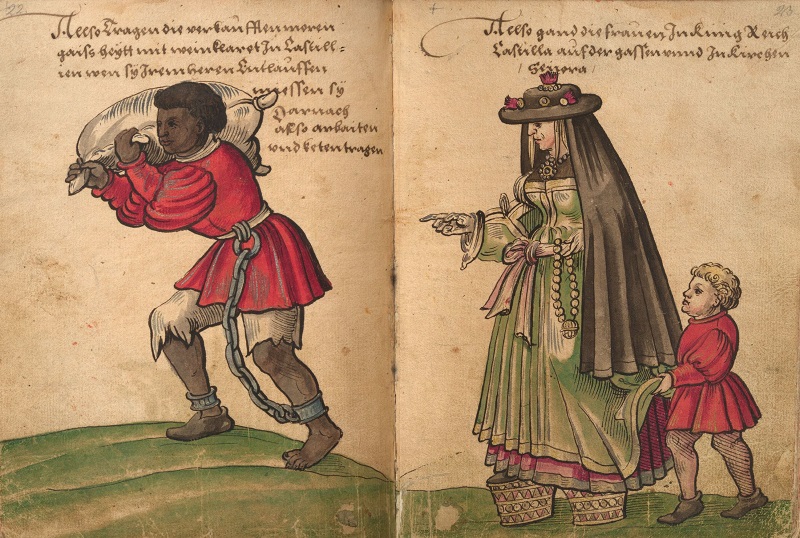 22
Allso Tragen die verkaufften moren
gaiss heytt mit wein klaret In Castill=
ien wen sy Irem heren Entlauffen
miessen sy
Darnach
also arbaiten
vnd keten tragen
23
Allso gand die frauen In Kunig Reich
Castilla auf der gassen vnnd In Kirchen
/ Senora /